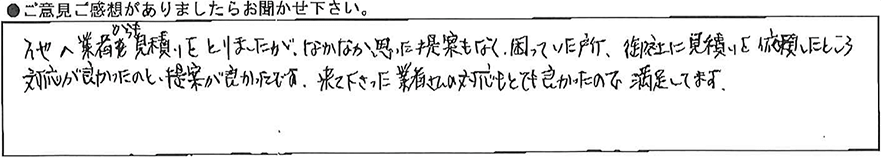 ●ご意見ご感想がありましたらお聞かせ下さい。
他の業者からも見積りをとりましたが、なかなか思った提案もなく、困っていた所、御社に見積りを依頼したところ
対応が良かったのと、提案が良かったです。来て下さった業者さんの対応もとても良かったので満足してます。